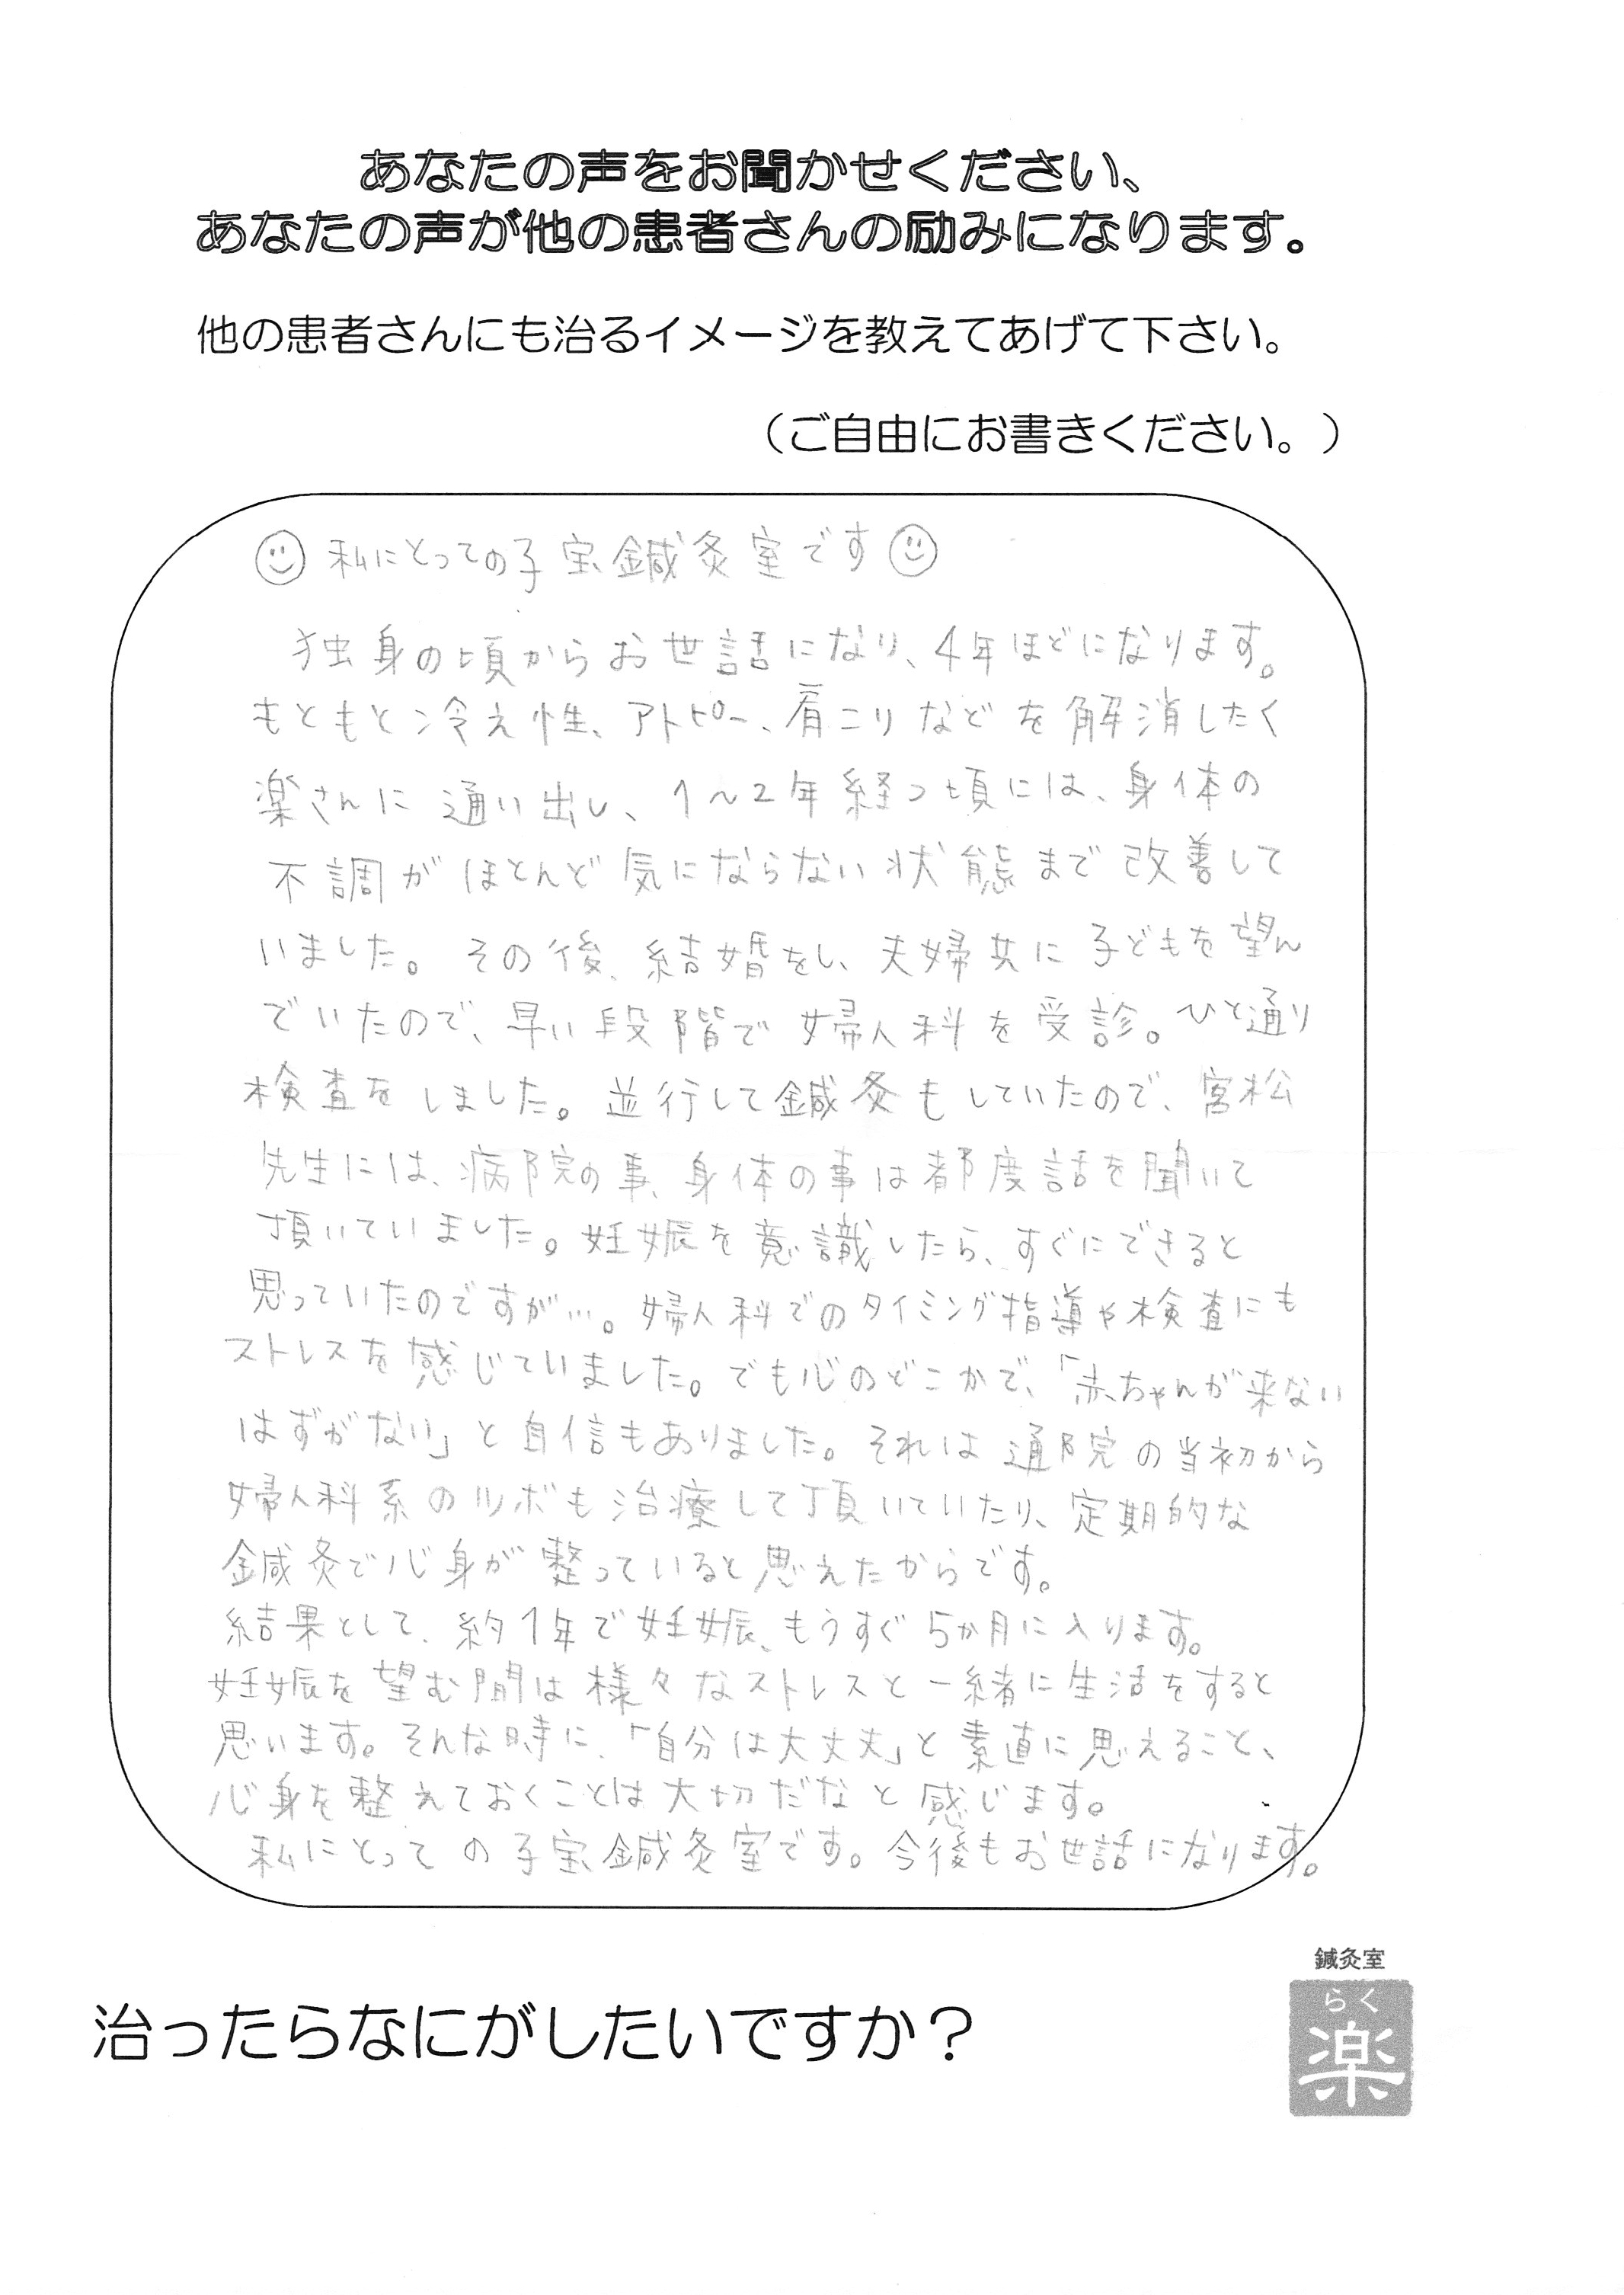 あなたの声をお聞かせください、
あなたの声が他の患者さんの励みになります。
他の患者さんにも治るイメージを教えてあげて下さい。
（ご自由にお書きください。）
私にとっての子宝鍼灸室です
独身の頃からお世話になり、4年ほどになります。
もともと冷え性、アトピー、肩こりなどを解消したく
楽さんに通い出し、1〜2年経つ頃には、身体の
不調がほとんど気にならない状態まで改善して
いました。その後、結婚をし、夫婦共に子どもを望ん
でいたので、早い段階で婦人科を受診。ひと通り
検査をしました。並行して鍼灸もしていたので、宮松
先生には、病院の事、身体の事は都度話を聞いて
頂いていました。妊娠を意識したら、すぐにできると
思っていたのですが…。婦人科でのタイミング指導や検査にも
ストレスを感じていました。でも心のどこかで、「赤ちゃんが来ない
はずがない」と自信もありました。それは通院の当初から
婦人科系のツボも治療して頂いていたり、定期的な
鍼灸で心身が整っていると思えたからです。
結果として、約1年で妊娠、もうすぐ5か月に入ります。
妊娠を望む間は様々なストレスと一緒に生活をすると
思います。そんな時に、「自分は大丈夫」と素直に思えること、
心身を整えておくことは大切だなと感じます。
私にとっての子宝鍼灸室です。今後もお世話になります。
治ったらなにがしたいですか？
鍼灸室
らく
楽